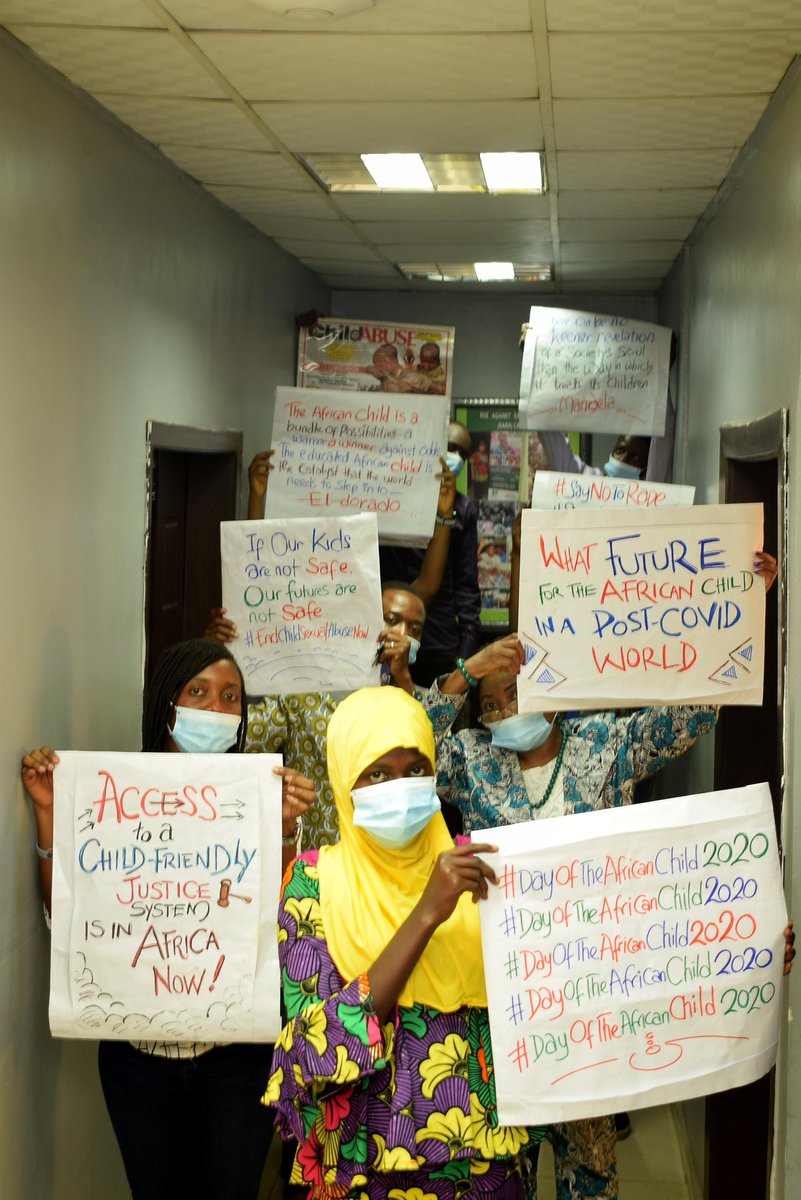 ChildABUSE
There can be no
keener revelation
of a Society's Soul
than the way in which
it treats its Children
Mandela
The African Child is a
bundle of possibilities-a
a winner against odds
The educated African child is
the catalyst that the world
needs to step into
-El-dorado
#SayNoToRape
RISE AGAINST
If Our Kids
are not Safe.
Our futures are
not Safe.
#EndChildSexualAbuseNow
What Future
for the African Child
in a Post-Covid
World
Access
to a
Child-Friendly
Justice
System
is in
Africa
Now!
#DayOfTheAfricanChild 2020
#DayOfTheAfricanChild 2020
#DayOfTheAfricanChild 2020
#DayOfTheAfricanChild 2020
#DayOfTheAfricanChild 2020